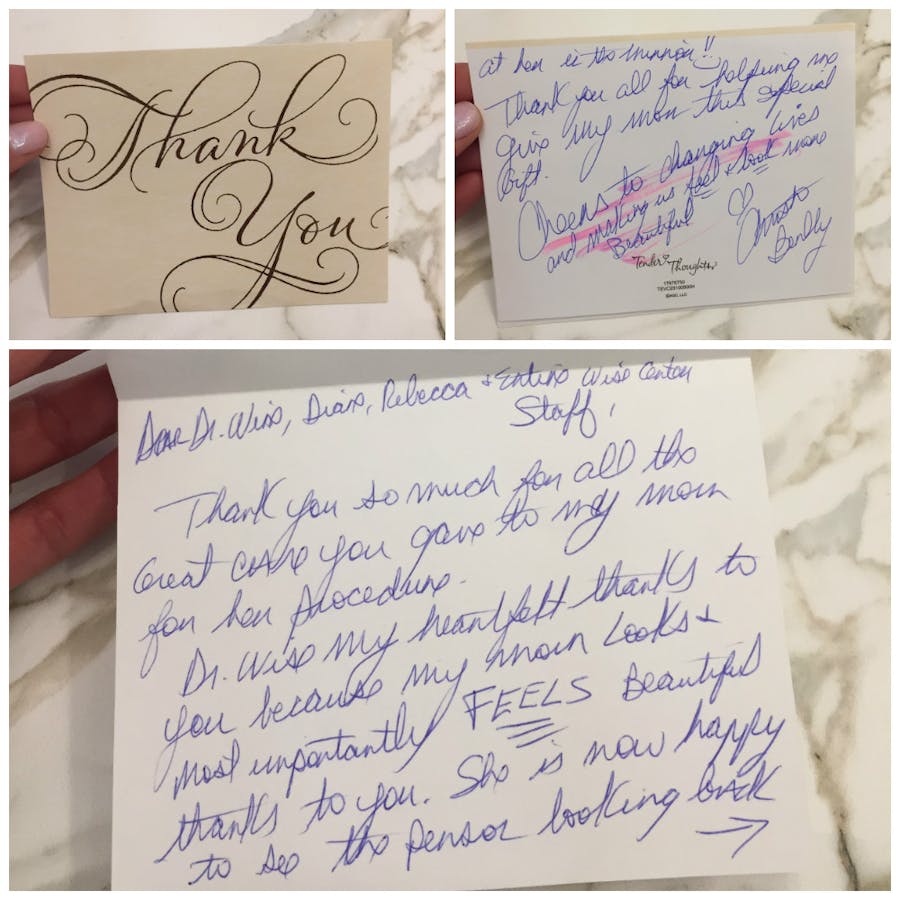 Thank
You
Dear Dr. Wise, Diane, Rebecca & Entire Wise Center
Staff,
Thank you so much for all the
Great care you gave to my mom
for her procedure.
Dr. Wise my heartfelt thanks to
you because my mom Looks &
most importantly FEELS Beautiful
thanks to you. She is now happy
to see the person looking back
→
at her in the mirror!!
Thank you all for helping me
give my mom this special
Gift.
Cheers to changing lives
and making us feel & look more
Beautiful
♡
Tender Thoughts